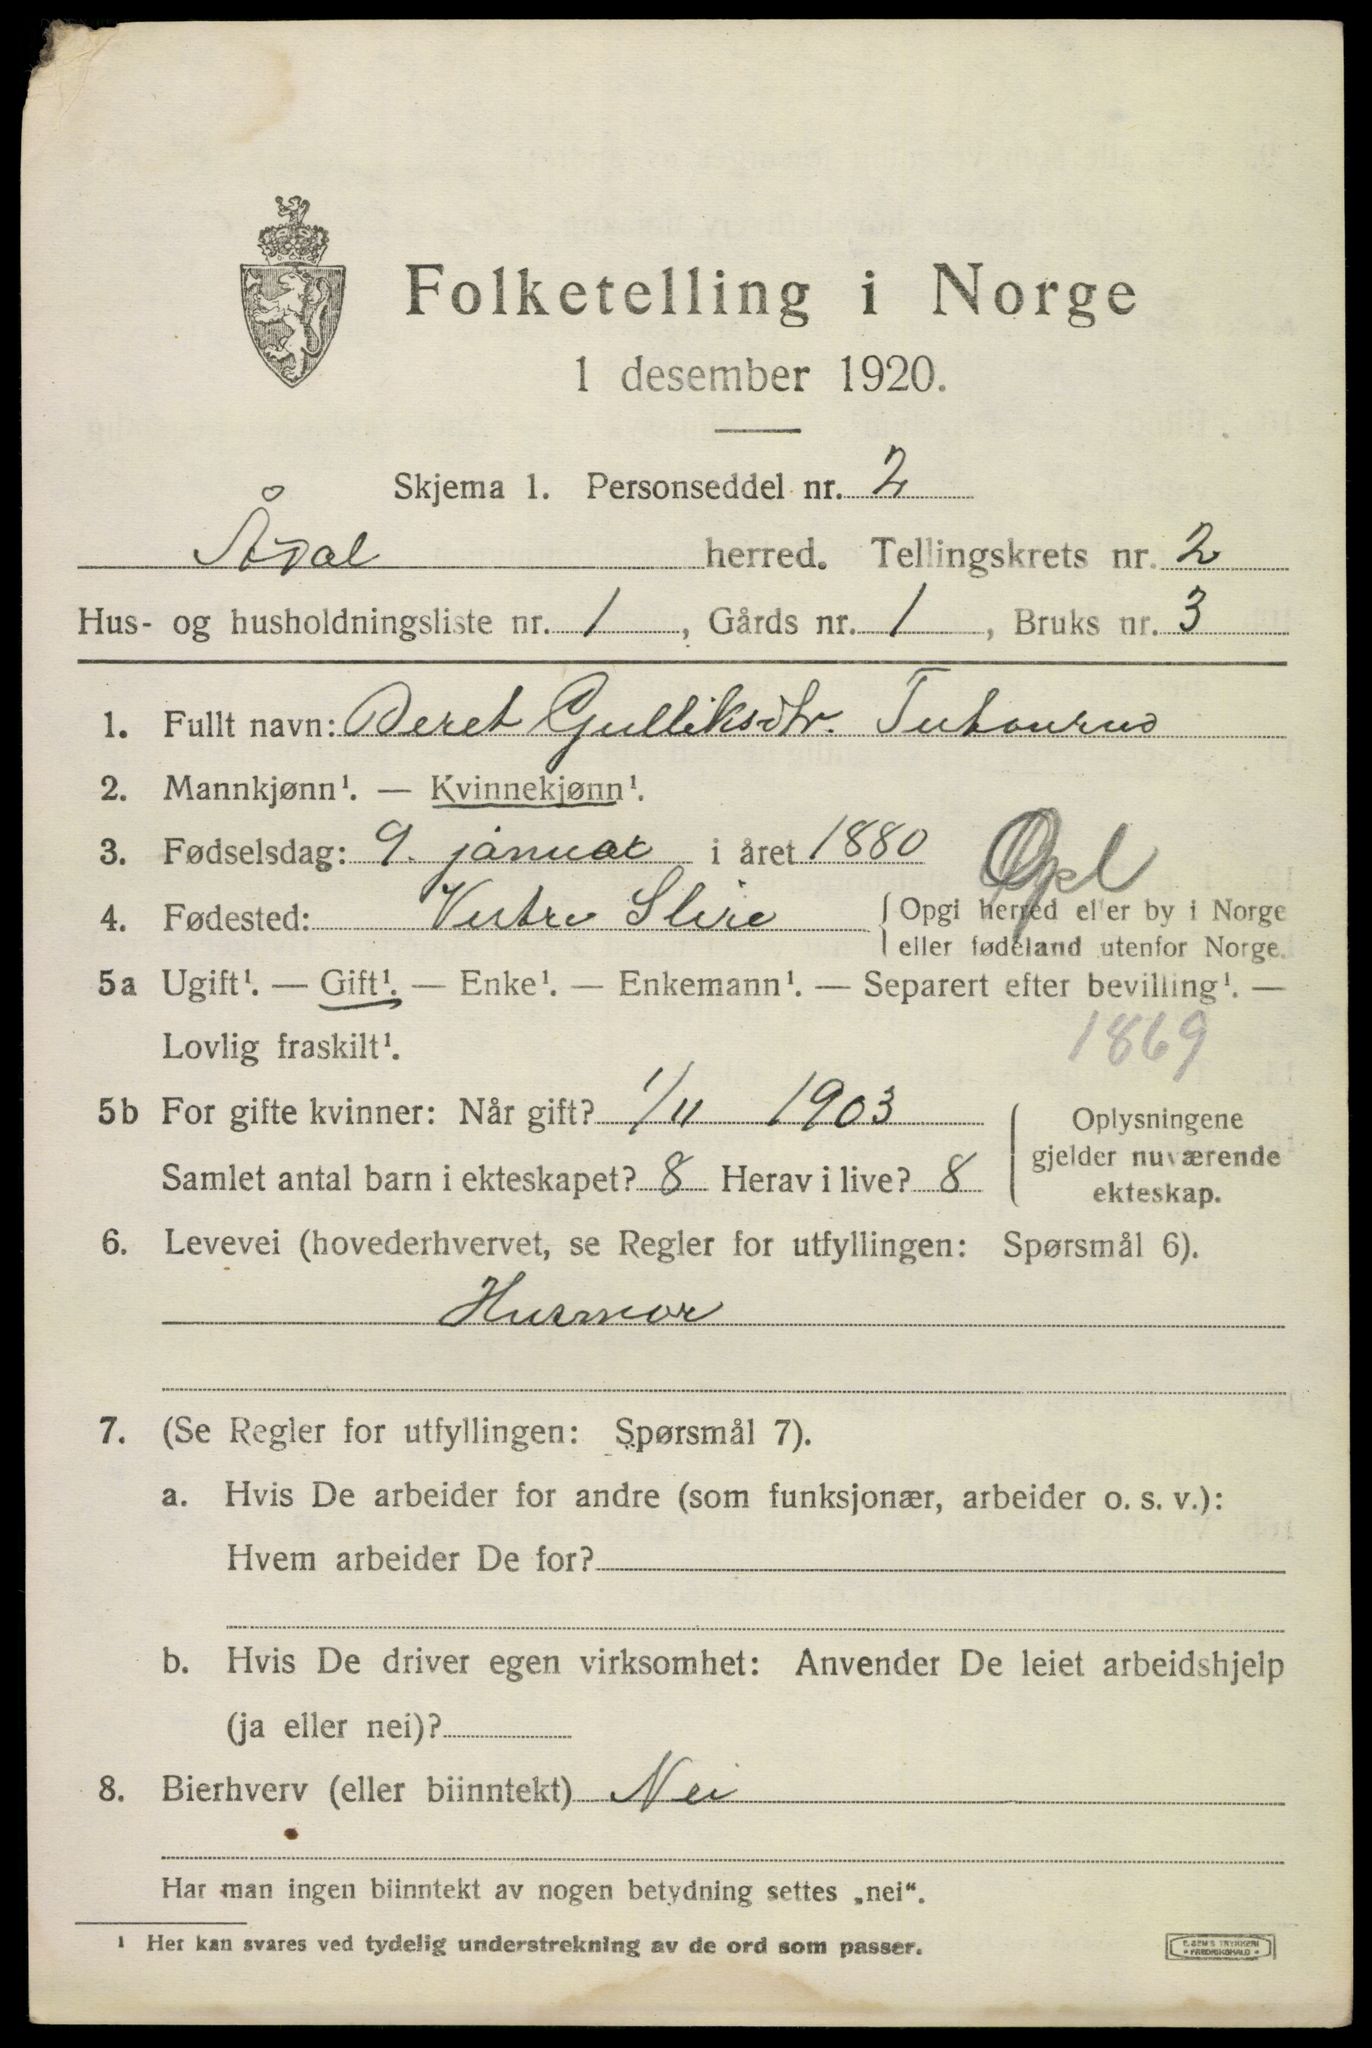 Folketelling i Norge
1 desember 1920.
Skjema 1. Personseddel nr. 2
Ådal herred. Tellingskrets nr. 2
Hus- og husholdningsliste nr. 1, Gårds nr. 1, Bruks nr. 3
1. Fullt navn: Beret Gulliksdtr.
2. Mannkjønn¹. — Kvinnekjønn¹.
3. Fødselsdag: 9. januar i året 1880
Opl
4. Fødested: Vestre Slire { Opgi herred eller by i Norge
eller fødeland utenfor Norge.
5a Ugift¹. — Gift¹. — Enke¹. — Enkemann¹. — Separert efter bevilling¹. —
Lovlig fraskilt¹.
1869
5b For gifte kvinner: Når gift? 1/11 1903
Samlet antal barn i ekteskapet? 8 Herav i live? 8
{ Oplysningene
gjelder nuværende
ekteskap.
6. Levevei (hovederhvervet, se Regler for utfyllingen: Spørsmål 6).
Husmor
7. (Se Regler for utfyllingen: Spørsmål 7).
a. Hvis De arbeider for andre (som funksjonær, arbeider o. s. v.):
Hvem arbeider De for?
b. Hvis De driver egen virksomhet: Anvender De leiet arbeidshjelp
(ja eller nei)?
8. Bierhverv (eller biinntekt) Nei
Har man ingen biinntekt av nogen betydning settes „nei“.
¹ Her kan svares ved tydelig understrekning av de ord som passer.
E. SEM'S TRYKKERI
FREDRIKSHALD